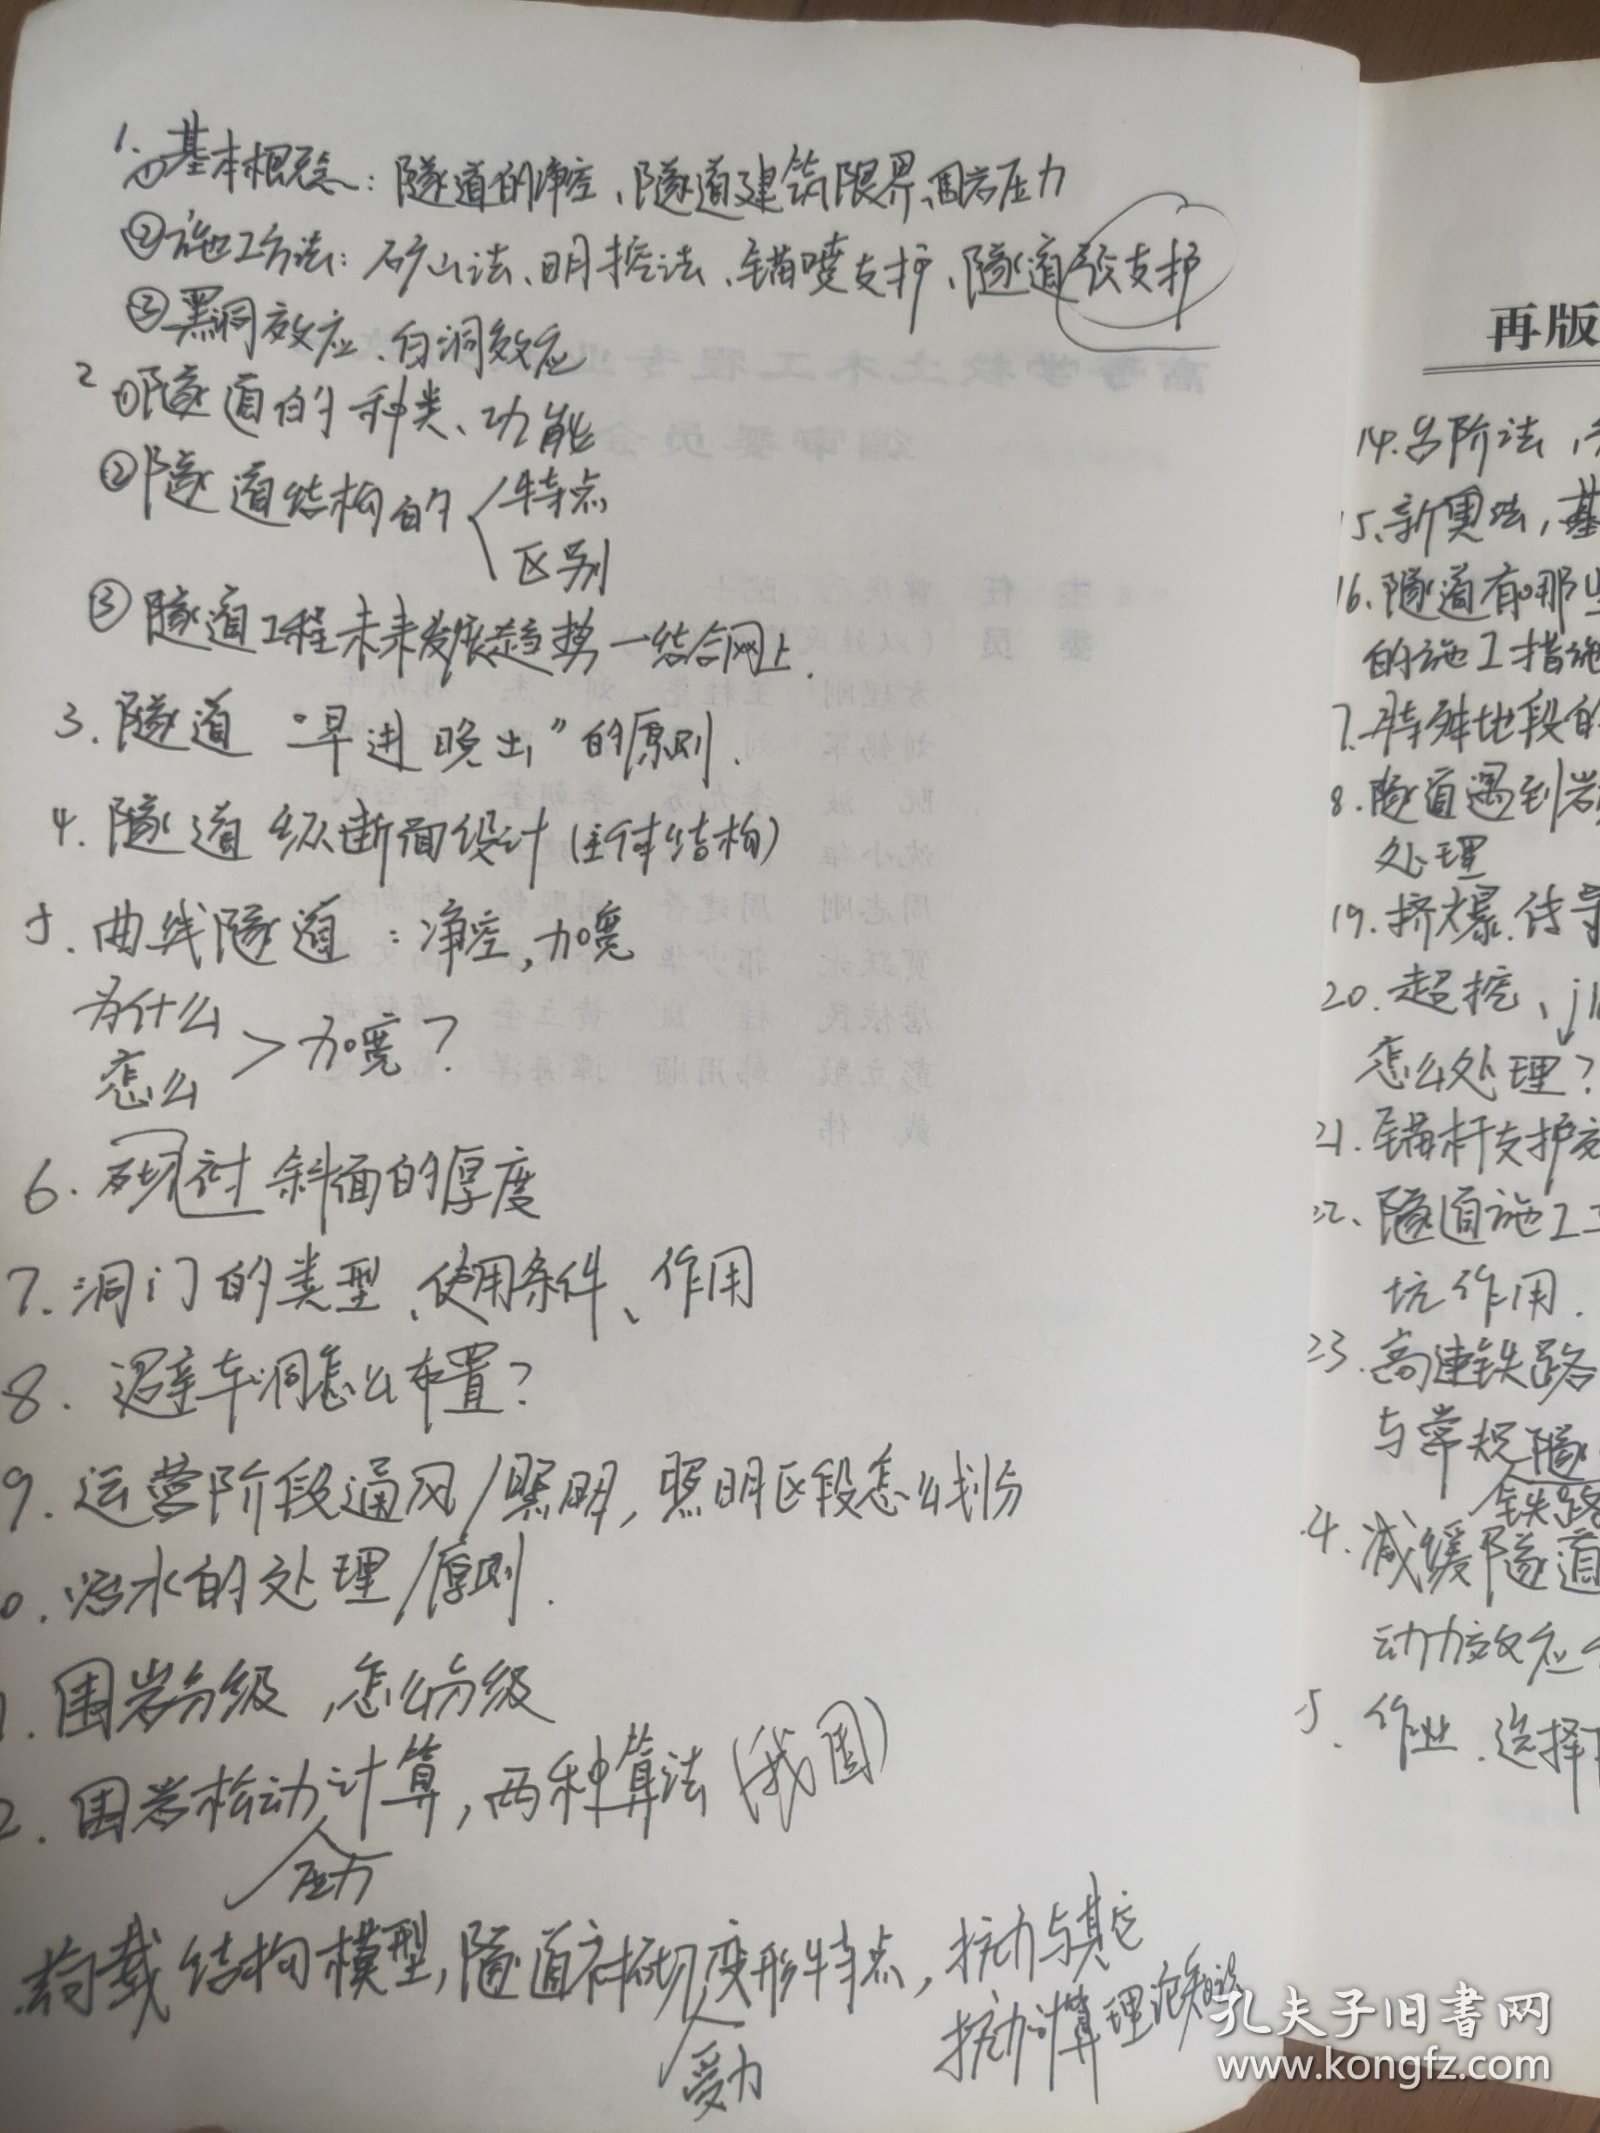 1.①基本概念：隧道的净空、隧道建筑限界、围岩压力
②施工方法：矿山法、明挖法、锚喷支护、隧道预支护
③黑洞效应、白洞效应
2 ①隧道的种类、功能
②隧道结构的<特点
区别
③隧道工程未来发展趋势一结合网上.
3.隧道“早进晚出”的原则.
4.隧道纵断面设计(主体结构)
5.曲线隧道：净空,加宽
为什么
怎么 >加宽?
6.砌衬斜面的厚度
7.洞门的类型、使用条件、作用
8.避车洞怎么布置?
9.运营阶段通风/照明,照明区段怎么划分
0.治水的处理/原则.
1.围岩分级,怎么分级
2.围岩松动计算,两种算法(我国)
压力
荷载结构模型,隧道衬砌变形特点,抗力与其它
受力
抗力计算理论
再版
14.台阶法,
15.新奥法,基
16.隧道有哪些
的施工措施
7.特殊地段的
8.隧道遇到岩
处理
19.挤爆.传导
20.超挖、
怎么处理?
21.锚杆支护
22.隧道施工
坑作用.
23.高速铁路
与常规隧
铁路
4.减缓隧道
动力效应
5.作业.选择
孔夫子旧书网
www.kongfz.com